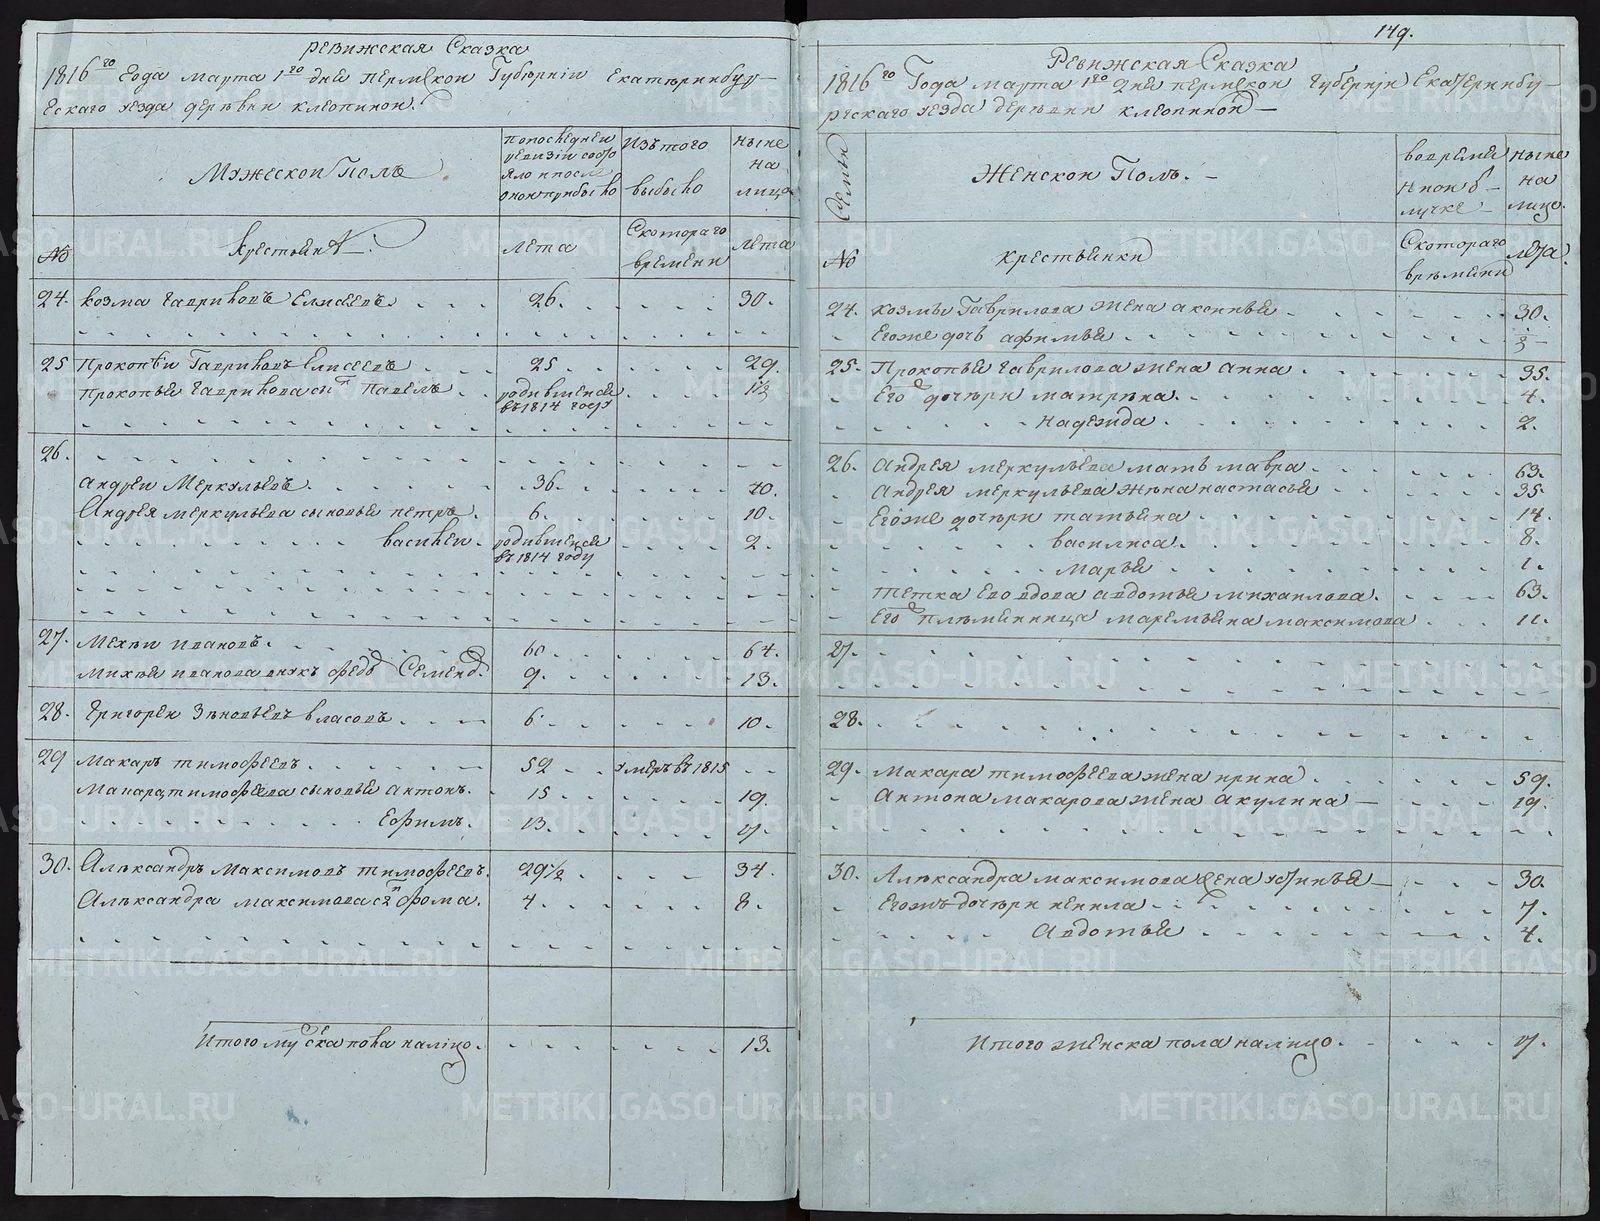 ревижская Сказка
1816го Года марта 1го дня пермской Губернiи Екатеринбур-
Ескаго уезда деревни клепиной.
Мужеской Полъ
попоследнеи ревизiи состояло ипосле оной прибыло
Изътого выбыло
ныне на лицо
№
Крестьяня
лета
Скотораго времени
лета
24. козма Гавриловъ Елисеевъ 26. 30.
25 Прокопеи Гавриловъ Елисеевъ 25 29.
прокопья Гаврилова сынъ Павелъ родившеися въ1814 году 1½
26.
андреи Меркульевъ. 36. 40.
Андрея меркульева сыновья петръ. 6. 10.
василеи. родившеися въ1814 году 2.
27. Михеи ивановъ. 60 64.
михея иванова внукъ федъ Семенов. 9. 13.
28. Григореи Зеновьевъ власовъ 6. 10.
29 макаръ тимофеевъ 52 умеръ въ1815
макара тимофеева сыновья антонъ. 15 19.
Ефимъ. 13. 17.
30. Александръ максимовъ тимофеевъ. 29½ 34.
Александра максимова сынъ фома. 4. 8.
Итого мужеска пола налицо. 13.
149.
Ревижская Сказка
1816го Года марта 1го дня пермской губернiи Екатеринбу-
ргскаго уезда деревни клепиной
Семьи
Женской Полъ.
вовремянной отлучке
ныне на лицо.
№
крестьянки
Скотораго времяни
лета.
24. козмы Гаврилова жена аксинья 30.
Егоже дочь афимья
25. Прокопья Гаврилова жена анна 35.
Его дочери матрена. 4.
надежда 2.
26. Андрея меркульева мать мавра 63.
Андрея меркульева жена настасья 35.
Егоже дочери татьяна 14.
василиса. 8.
Марья 1.
тетка Ево вдова авдотья михаилова. 63.
Его племянница маремьяна максимова 11.
27.
28.
29. Макара тимофеева жена ирина 59.
Антона макарова жена акулина 19.
30. Александра максимова жена устинья 30.
Егожъ дочери ненила 7.
Авдотья 4.
Итого женска пола налицо. 17.
METRIKI.GASO-URAL.RU